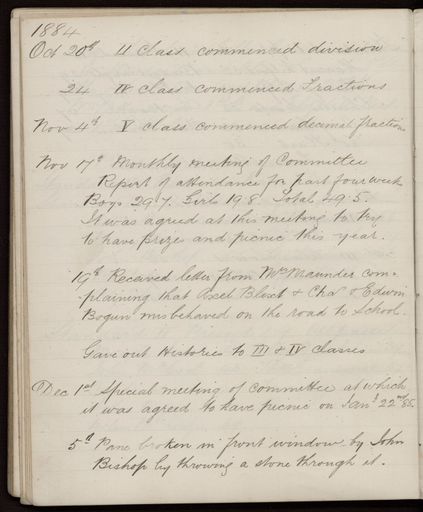 1884
Oct 20th II Class commenced division
24 IV Class commenced Fractions
Nov 4th V Class commenced decimal fractions
Nov 17th Monthly meeting of Committee
Report of attendance for past four week
Boys 29.7. Girls 19.8. Total 49.5.
It was agreed at this meeting to try
to have prizes and picnic this year.
19th Received letter from Mrs Maunder com-
plaining that Axel Bloxt & Chas & Edwin
Bogun misbehaved on the road to School.
Gave out Histories to III & IV Classes
Dec 1st Special meeting of committee at which
it was agreed to have picnic on Jany 22nd 85.
5th Pane broken in front window by John
Bishop by throwing a stone through it.